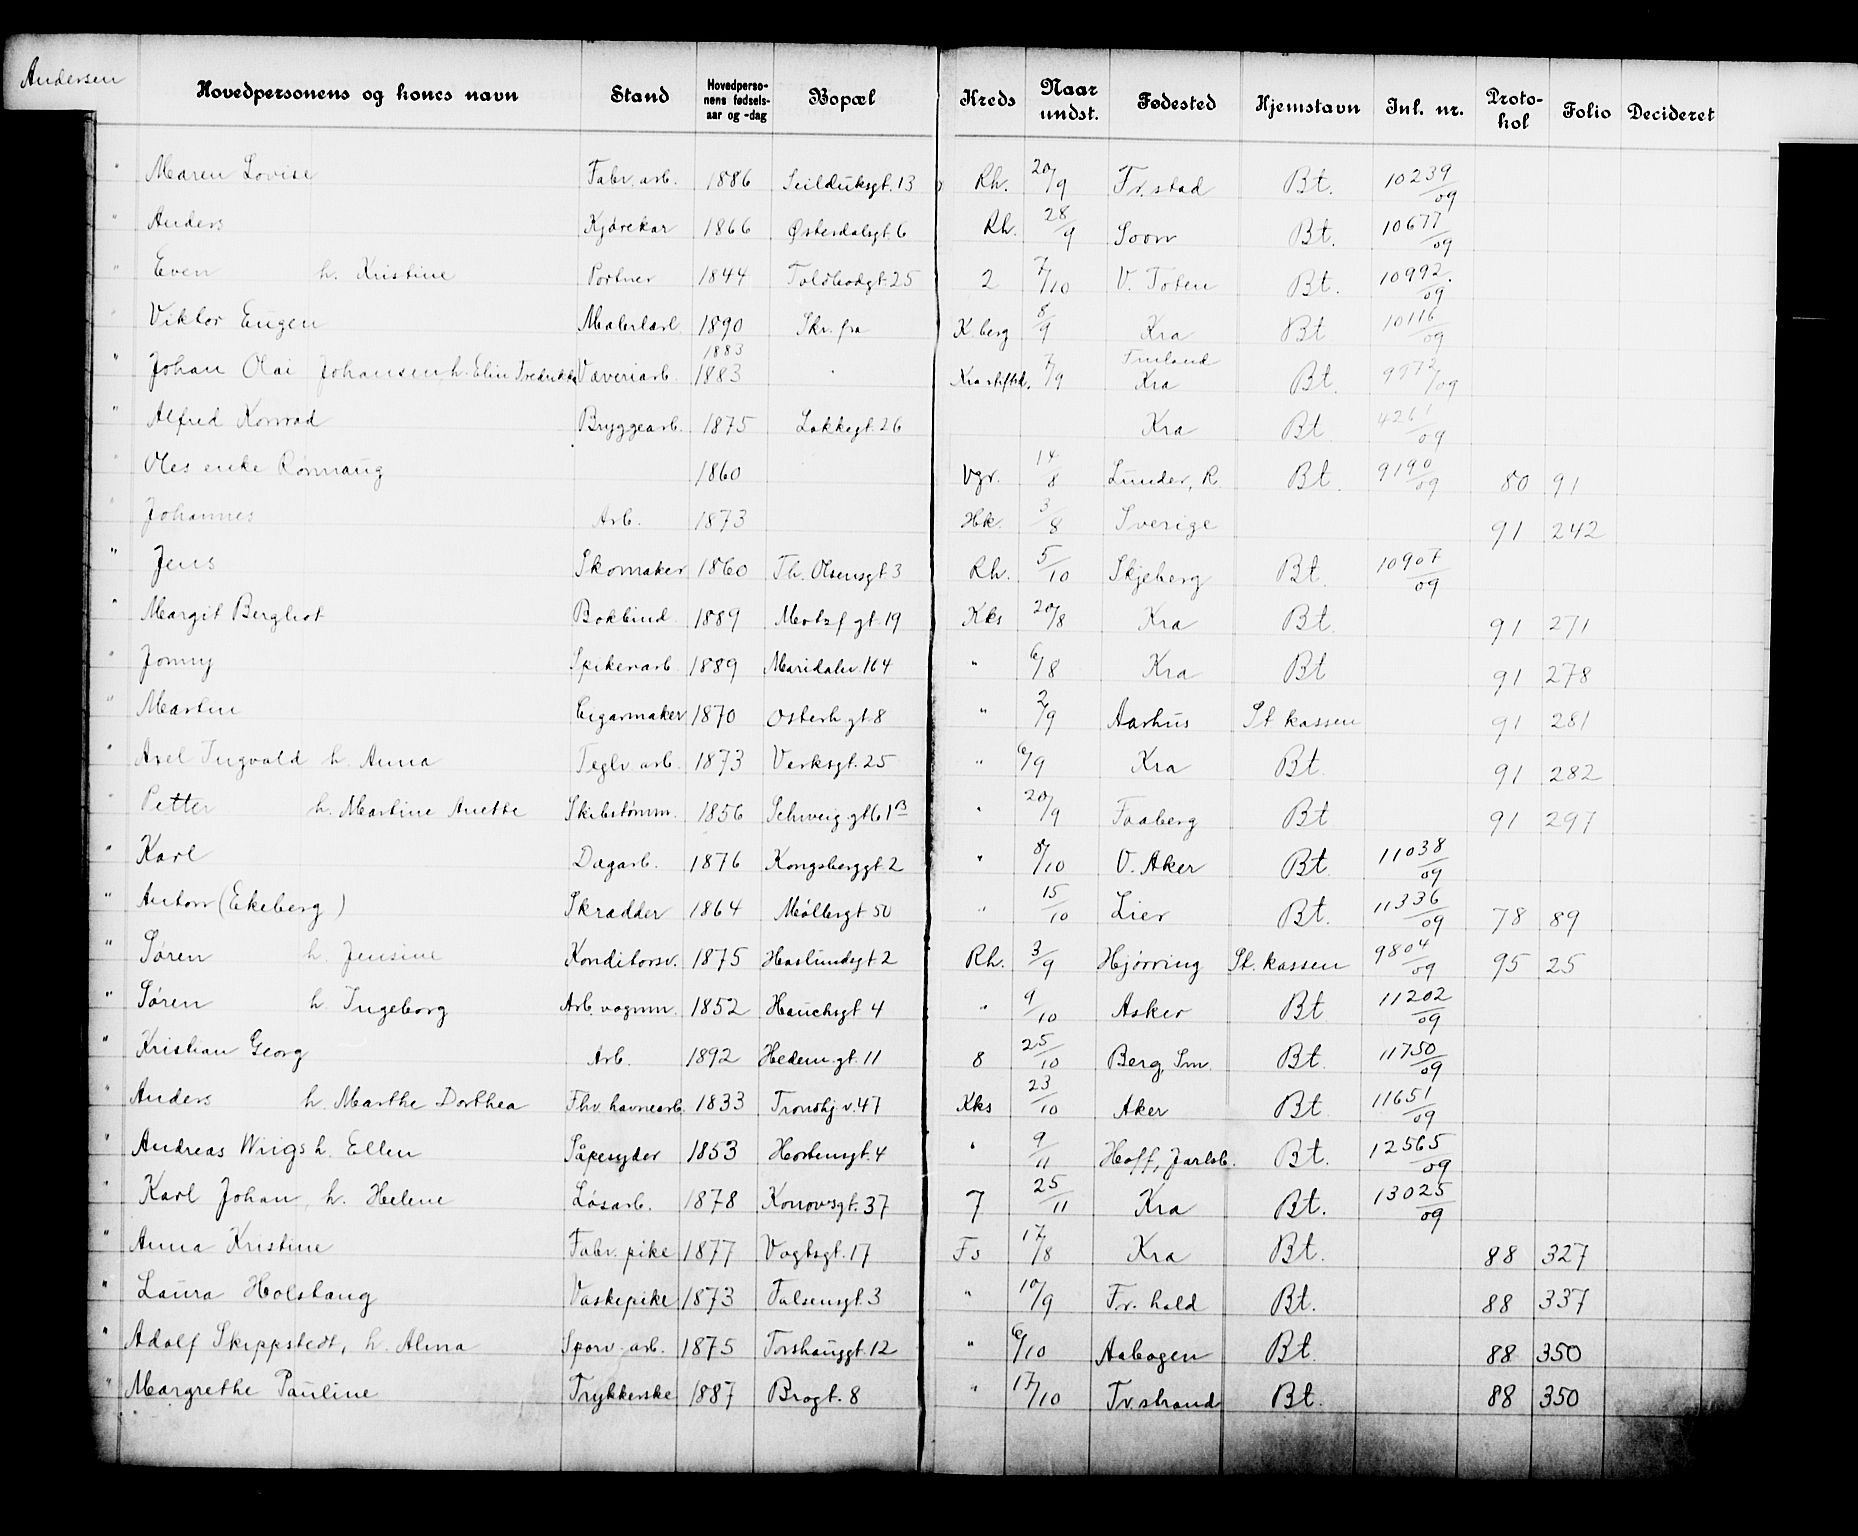 Andersen
Hovedpersonens og kones navn Stand Hovedperso-nens fødsels-aar og -dag Bopæl Kreds Naar undst. Fødested Hjemstavn Inl. nr. Proto-kol Folio Decideret
" Maren Lovise Fabr. arb. 1886 Seilduksgt. 13 Rh. 20/9 Fr.stad Bt. 10239/09
" Anders Kjørekar 1866 Østerdalsgt. 6 Rh. 28/9 Soon Bt. 10677/09
" Even h. Kristine Portner 1844 Toldbodgt. 25 2 7/10 V. Toten Bt. 10992/09
" Viktor Eugen 1890 Skr. fra K.berg 8/9 Kra Bt 10116/09
1883 Finland
" Johan Olai Johansen, h. Elin Fredrikke Væveriarb. 1883 " 7/9 Kra Bt. 9972/09
" Alfred Konrad Bryggearb. 1875 Lakkegt. 26 Kra Bt 4261/09
" Oles enke Rønnaug 1860 Vgr. 14/8 Lunder, R. Bt. 9190/09 80 91
" Johannes Arb. 1873 Hk. 3/8 Sverige 91 242
" Jens Skomaker 1860 Th. Olsensgt. 3 Rh. 5/10 Skjeberg Bt. 10907/09
" Margit Bergliot Bokbind. 1889 Motzf gt. 19 Kks 20/8 Kra Bt. 91 271
" Jonny Spikerarb. 1889 Maridalsv. 164 " 6/8 Kra Bt 91 278
" Martin Cigarmaker 1870 Osterh. gt. 8 " 2/9 Aarhus St kassen 91 281
" Axel Ingvald h. Anna Teglv. arb. 1873 Verksgt. 25 " 6/9 Kra Bt. 91 282
" Petter h. Martine Anette Skibstømm. 1856 Schweig gt 61 B " 20/9 Faaberg Bt 91 297
" Karl Dagarb. 1876 Kongsberggt. 2 " 8/10 V. Aker Bt 11038/09
" Anton (Ekeberg) Skradder 1864 Møllergt 50 " 15/10 Lier Bt. 11336/09 78 89
" Søren h. Jensine Konditorsv. 1875 Haslundsgt 2 Rh. 3/9 Hjørring St. kassen 9804/09 95 25
" Søren h. Ingeborg Arb. vognm. 1852 Hauchsgt 4 " 9/10 Asker Bt 11202/09
" Kristian Georg Arb. 1892 Hedem. gt. 11 8 25/10 Berg, Sm. Bt. 11750/09
" Anders h. Marthe Dorthea Fhv. havnearb. 1833 Trondhj. v. 47 Kks 23/10 Aker Bt. 11651/09
" Andreas Wiigs h. Ellen Såpesyder 1853 Hortensgt. 4 " 9/11 Hoff, Jarlsb. Bt. 12565/09
" Karl Johan, h. Helene Løsarb. 1878 Konowsgt. 37 7 25/11 Kra Bt. 13025/09
" Anna Kristine Fabr. pike 1877 Vogtsgt. 17 Fs 17/8 Kra Bt. 88 327
" Laura Holstang Vaskepike 1873 Falsensgt. 3 " 10/9 Fr. hald Bt. 88 337
" Adolf Skippstedt, h. Alma Sporv. arb. 1875 Torshauggt. 12 " 6/10 Aabogen Bt. 88 350
" Margrethe Pauline Trykkerske 1887 Brogt. 8 " 17/10 Tv.strand Bt. 88 350